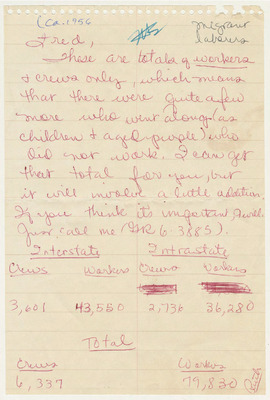 (ca. 1956
migrant
laborers
Fred,
These are totals of workers
& crews only, which means
that there were quite a few
more who went along (as
children & aged people) who
did not work. I can get
that total for you, but
it will involve a little addition.
If you think it's important I will.
Just call me (GR 6-3885).
Interstate Intrastate
Crews Workers Crews Workers
3,601 43,550 2,736 36,280
Total
Crews Workers
6,337 79,830